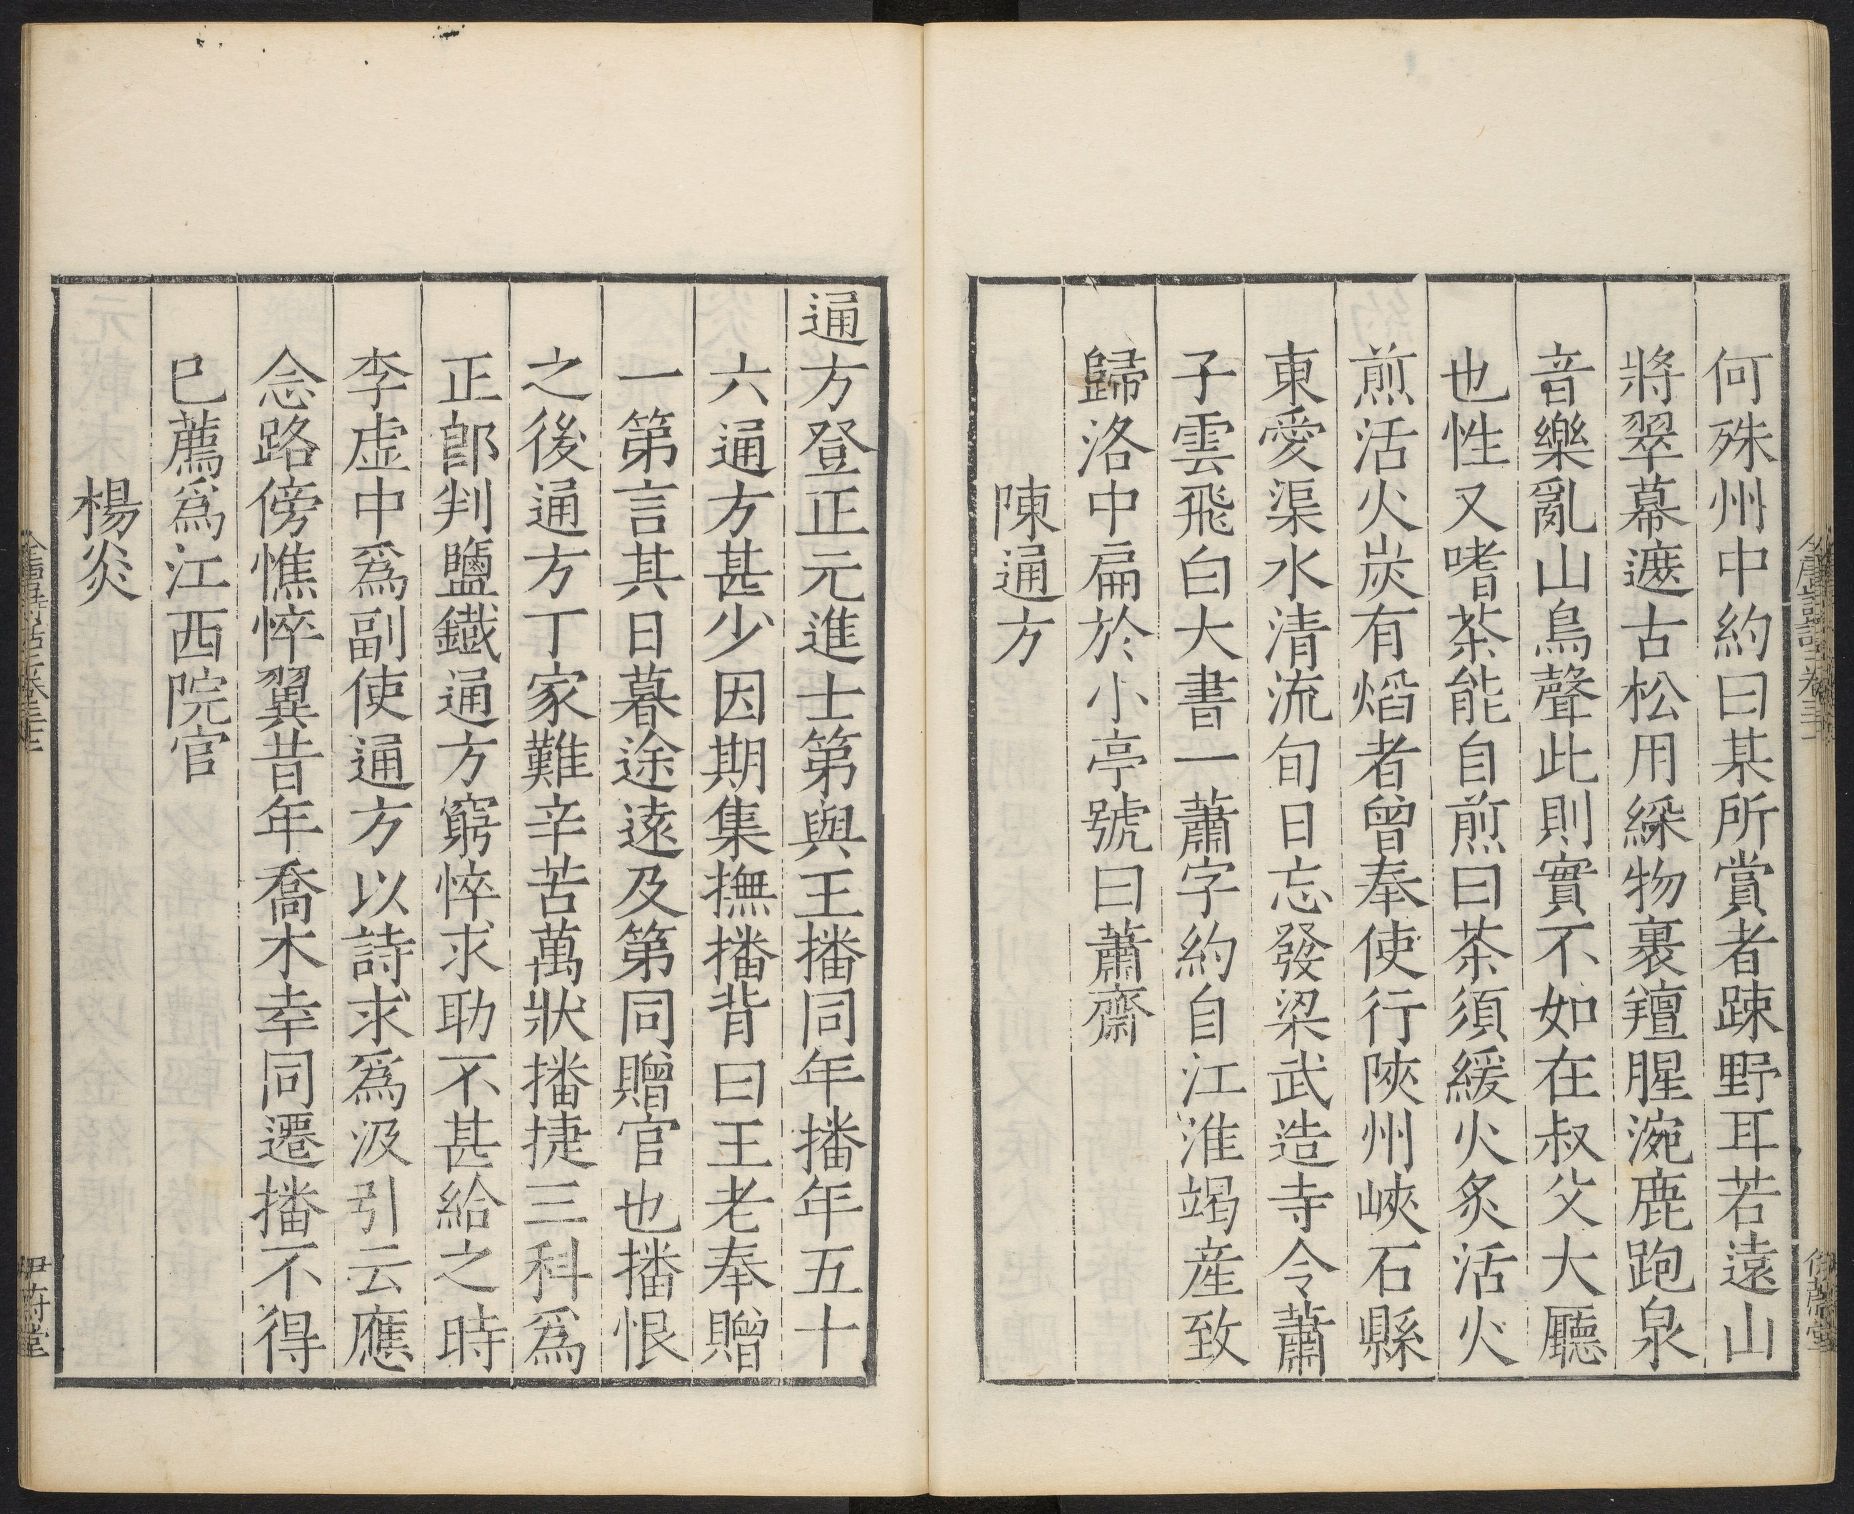 何殊州中約曰某所賞者踈野耳若遠山
將翠幕遮古松用綵物裹羶腥涴鹿跑泉
音樂亂山鳥聲此則實不如在叔父大廳
也性又嗜茶能自煎曰茶須緩火炙活火
煎活火炭有熖者曾奉使行陜州峽石縣
東愛渠水清流旬日忘發梁武造寺令蕭
子雲飛白大書一蕭字約自江淮竭産致
歸洛中扁於小亭號曰蕭齋
陳通方
通方登正元進士第與王播同年播年五十
六通方甚少因期集撫播背曰王老奉贈
一第言其日暮途遠及第同贈官也播恨
之後通方丁家難辛苦萬狀播捷三科為
正郎判鹽鐵通方窮悴求助不甚給之時
李虛中爲副使通方以詩求爲汲引云應
念路傍憔悴翼昔年喬木幸同遷播不得
已薦爲江西院官
楊炎